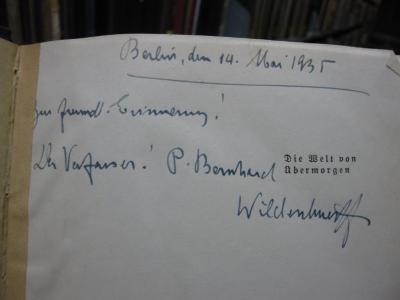 Berlin, den 14. Mai 1935
Zur freundl. Erinnerung!
Der Verfasser! P. Bernhard
Die Welt von
Übermorgen